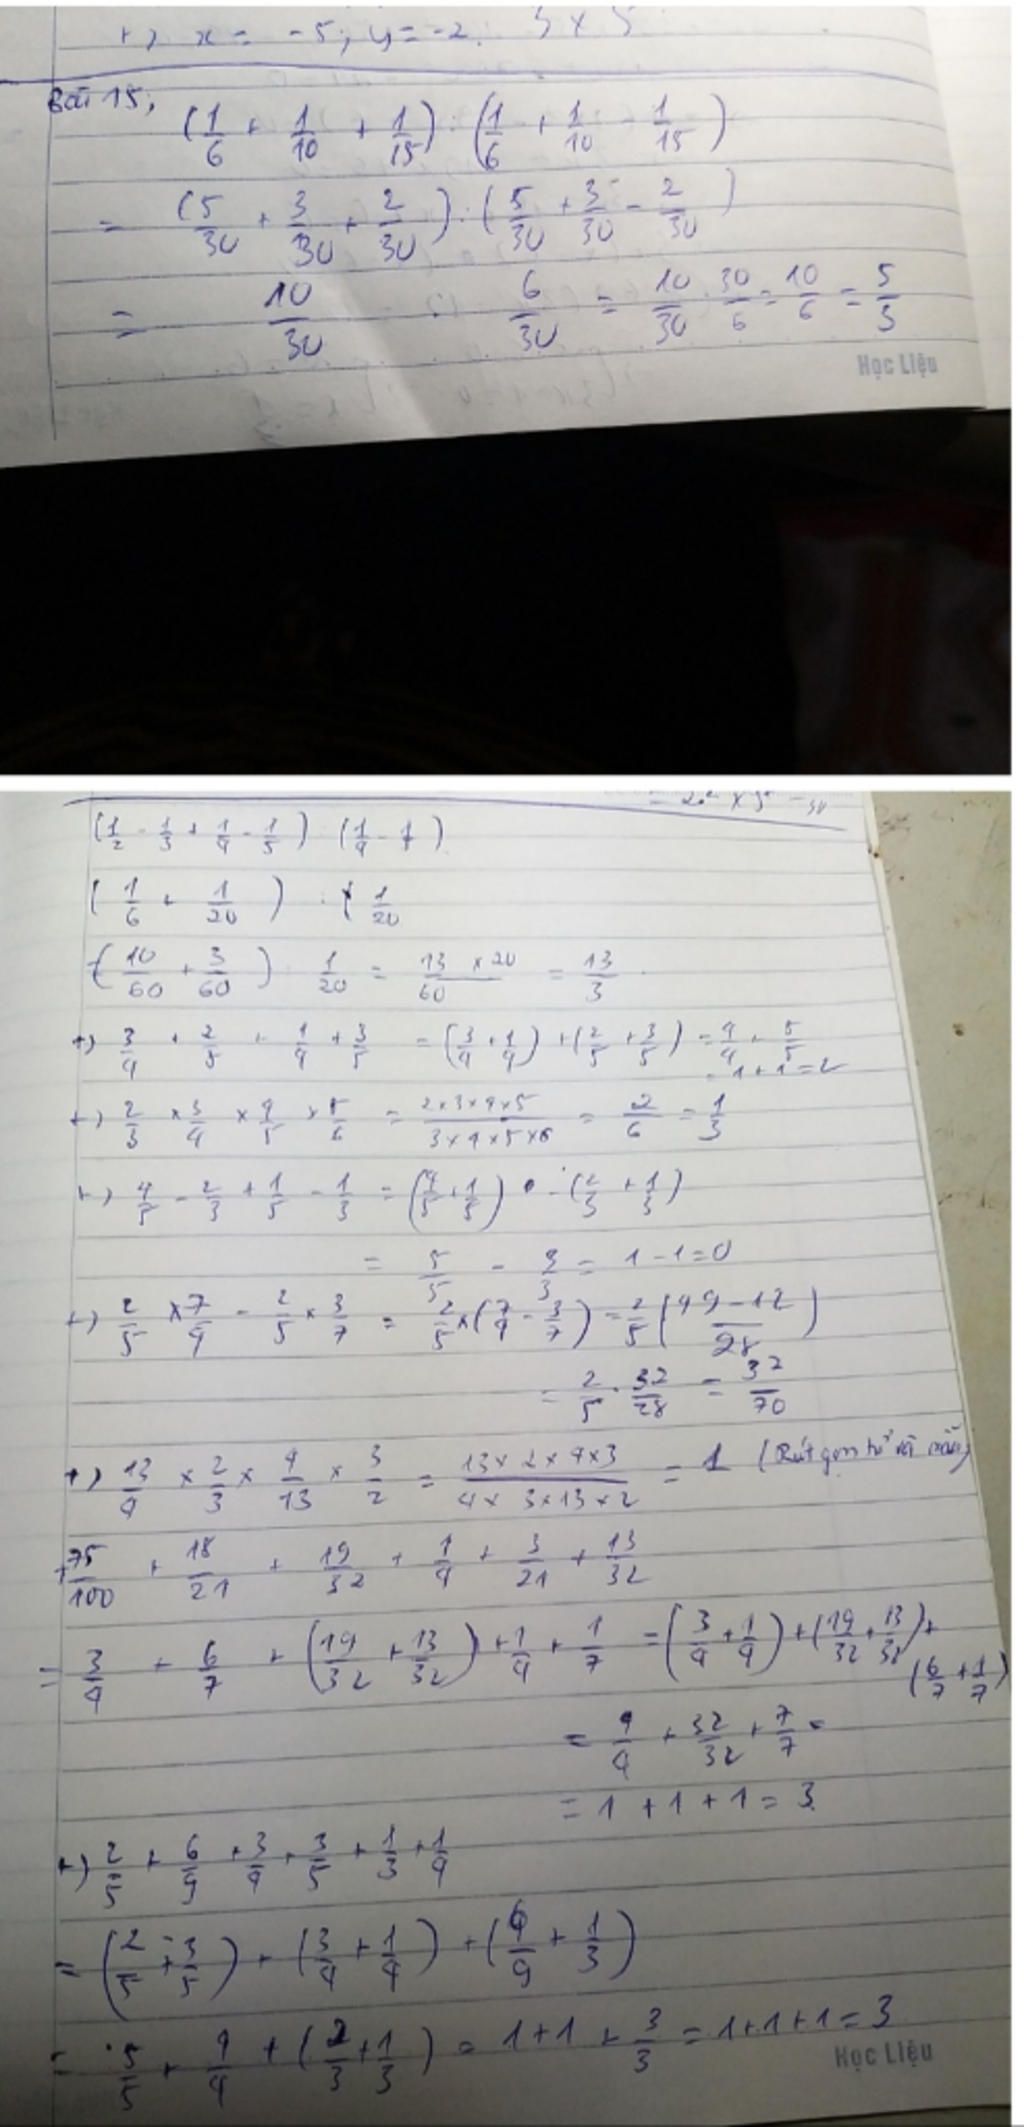 +) x = -5; y = -2.
Bài 15;
(1/6 + 1/10 + 1/15) : (1/6 + 1/10 - 1/15)
= (5/30 + 3/30 + 2/30) : (5/30 + 3/30 - 2/30)
= 10/30 6/30 = 10/30 . 30/6 = 10/6 = 5/3
Học Liệu
(1/2 - 1/3 + 1/4 - 1/5) : (1/4 - 1/
(1/6 + 1/20) : (1/20
(10/60 + 3/60) : 1/20 = 13 x 20/60 = 13/3
+) 3/4 + 2/5 + 1/4 + 3/5 = (3/4 + 1/4) + (2/5 + 3/5) = 4/4 + 5/5
= 1 + 1 = 2
+) 2/3 x 3/4 x 4/5 x 5/6 = 2 x 3 x 4 x 5/3 x 4 x 5 x 6 = 2/6 = 1/3
+) 4/5 - 2/3 + 1/5 - 1/3 = (4/5 + 1/5) - (2/3 + 1/3)
= 5/5 - 3/3 = 1 - 1 = 0
+) 2/5 x 7/4 - 2/5 x 3/7 = 2/5 x (7/4 - 3/7) = 2/5 (49 - 12/28)
= 2/5 . 32/28 = 32/70
+) 13/4 x 2/3 x 4/13 x 3/2 = 13 x 2 x 4 x 3/4 x 3 x 13 x 2 = 1 (Rút gọn tử và mẫu)
+ 75/100 + 18/21 + 19/32 + 1/4 + 3/21 + 13/32
= 3/4 + 6/7 + (19/32 + 13/32) + 1/4 + 1/7 = (3/4 + 1/4) + (19/32 + 13/32) +
(6/7 + 1/7)
= 4/4 + 32/32 + 7/7 =
= 1 + 1 + 1 = 3.
+) 2/5 + 6/9 + 3/4 + 3/5 + 1/3 + 1/4
= (2/5 + 3/5) + (3/4 + 1/4) + (6/9 + 1/3)
= 5/5 + 4/4 + (2/3 + 1/3) = 1 + 1 + 3/3 = 1 + 1 + 1 = 3
Học Liệu